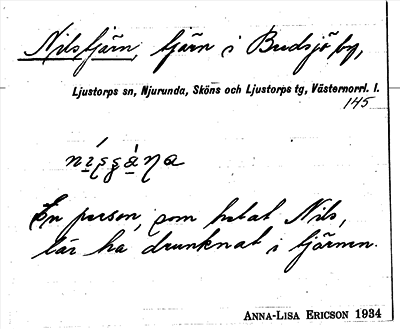 Nilstjärn, tjärn i Budsjö by,
Ljustorps sn, Njurunda, Sköns och Ljustorps tg, Västernorrl. l.
145
En person, som hetat Nils,
lär ha drunknat i tjärnen.
ANNA-LISA ERICSON 1934